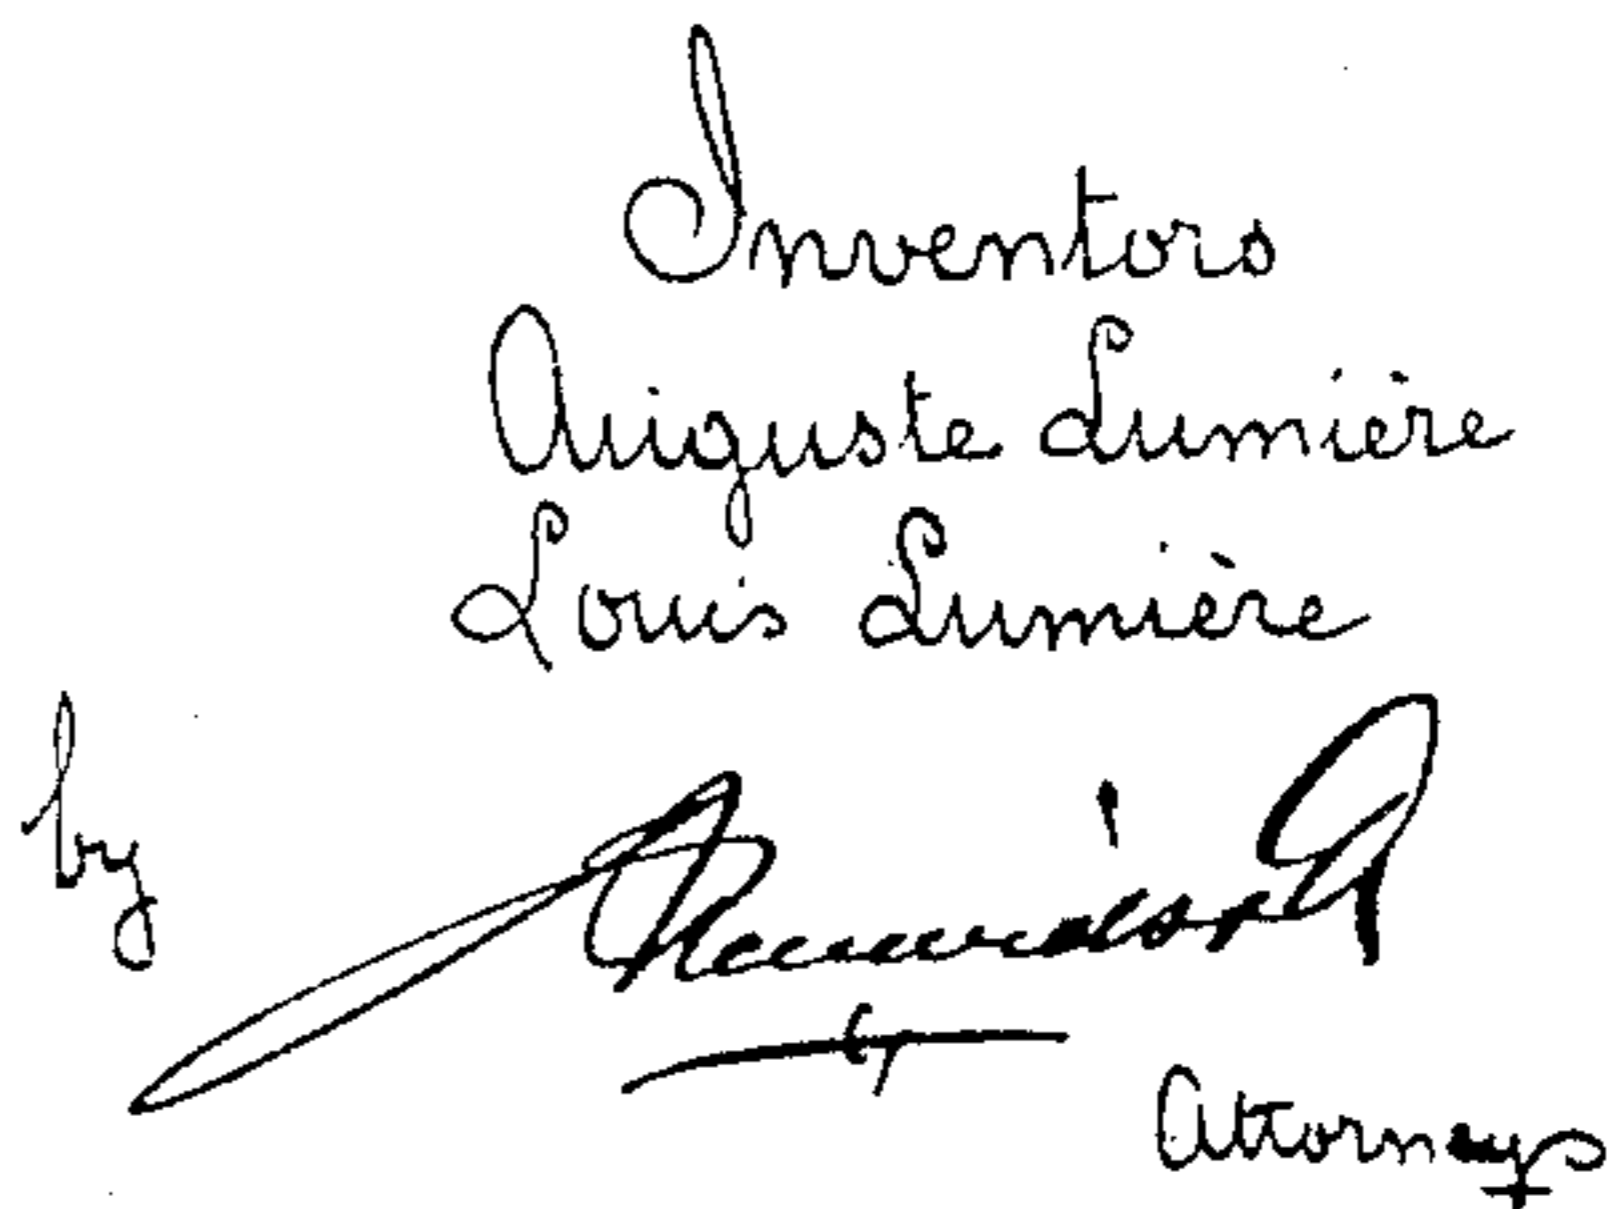 Inventors
Auguste Lumière
Louis Lumière
by
Attorneys